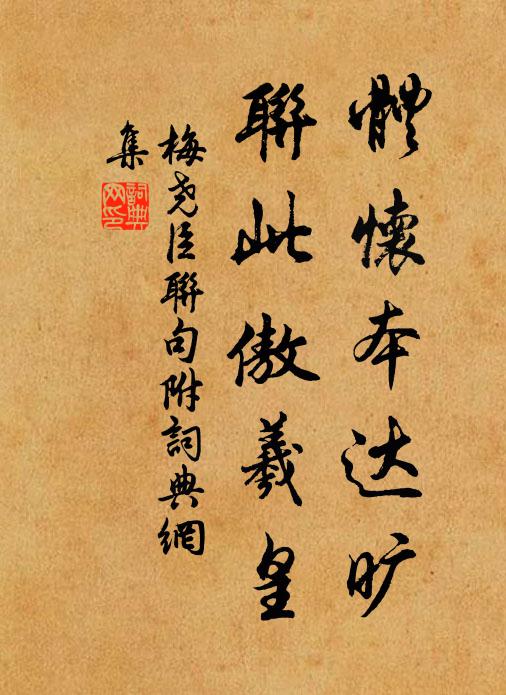 體懷本达旷
聯此傲羲皇
梅尧臣聯句附詞典網
集
詞典
网印